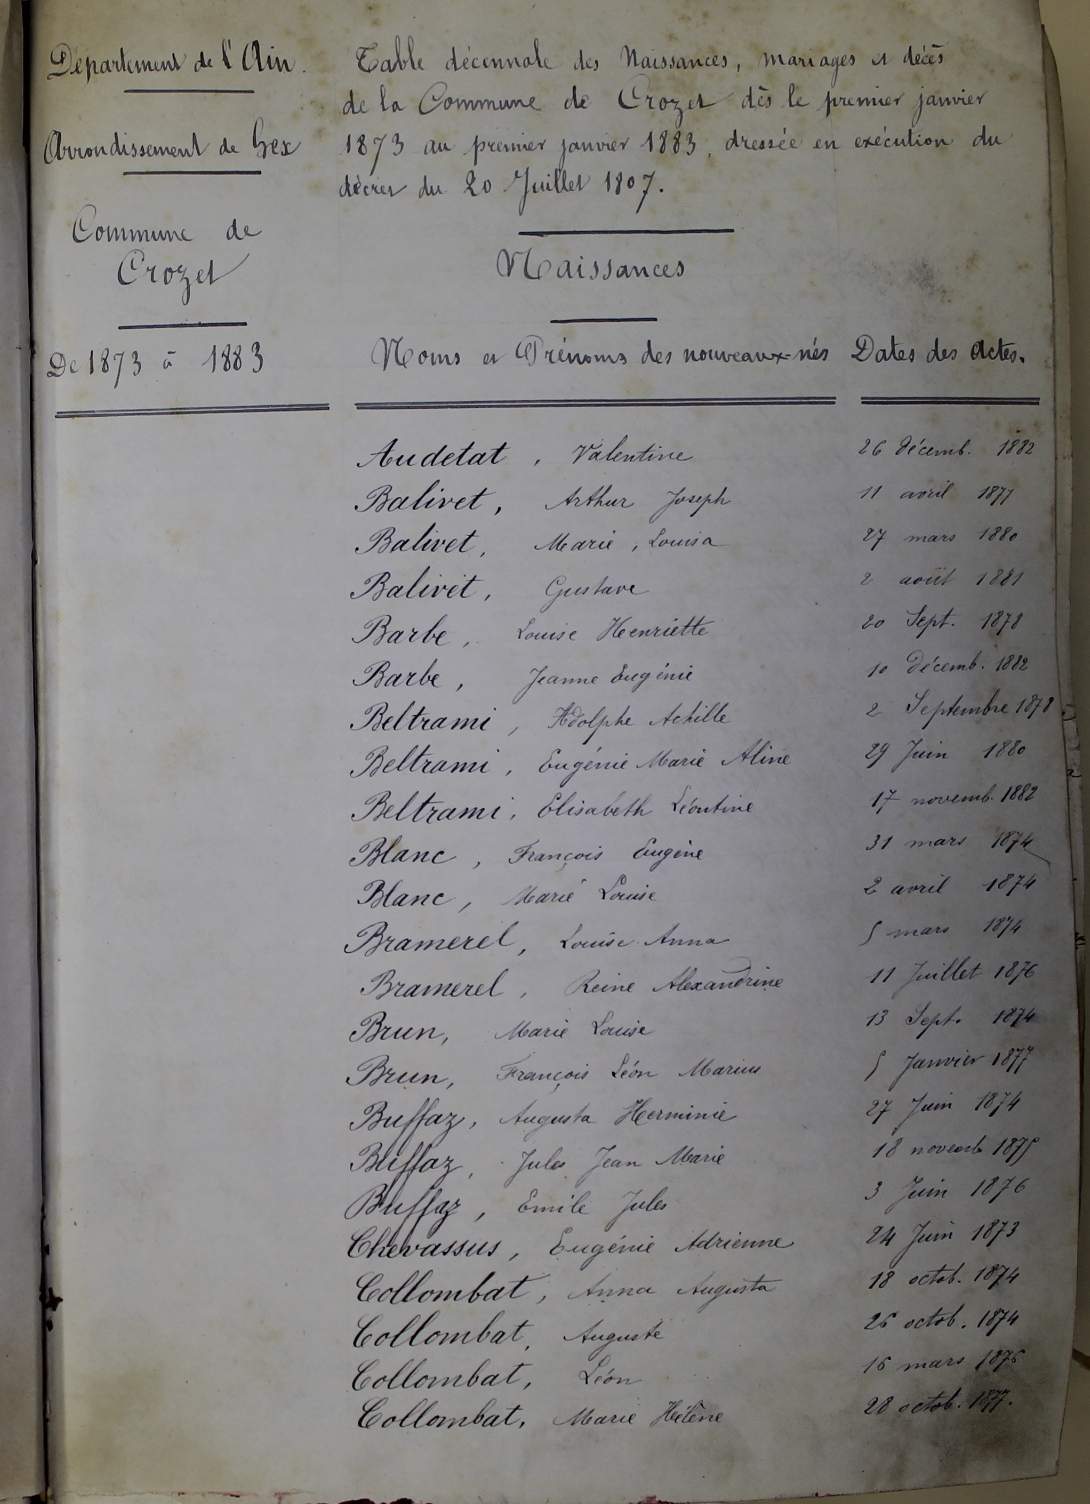 Département de l'Ain.
Arrondissement de Gex
Commune de
Crozet
De 1873 à 1883
Table décennale des Naissances, mariages et décès
de la Commune de Crozet dès le premier janvier
1873 au premier janvier 1883, dressée en exécution du
décret du 20 Juillet 1807.
Naissances
Noms et Prénoms des nouveaux-nés Dates des Actes.
Audetat, Valentine 26 décemb. 1882
Balivet, Arthur Joseph 11 avril 1877
Balivet, Marie, Louisa 27 mars 1880
Balivet, Gustave 2 août 1881
Barbe, Louise Henriette 20 Sept. 1878
Barbe, Jeanne Eugénie 10 décemb. 1882
Beltrami, Adolphe Achille 2 Septembre 1878
Beltrami, Eugénie Marie Aline 29 Juin 1880
Beltrami, Elisabeth Léontine 17 novemb. 1882
Blanc, François Eugène 31 mars 1874
Blanc, Marie Louise 2 avril 1874
Bramerel, Louise Anna 5 mars 1874
Bramerel, Reine Alexandrine 11 Juillet 1876
Brun, Marie Louise 13 Sept. 1874
Brun, François Léon Marius 5 Janvier 1877
Buffaz, Augusta Herminie 27 Juin 1874
Buffaz, Jules Jean Marie 18 novemb 1875
Buffaz, Emile Jules 3 Juin 1876
Chevassus, Eugénie Adrienne 24 Juin 1873
Collombat, Anna Augusta 18 octob. 1874
Collombat, Auguste octob. 1874
Collombat, Léon mars
Collombat, Marie Hélène 28 octob. 1877.